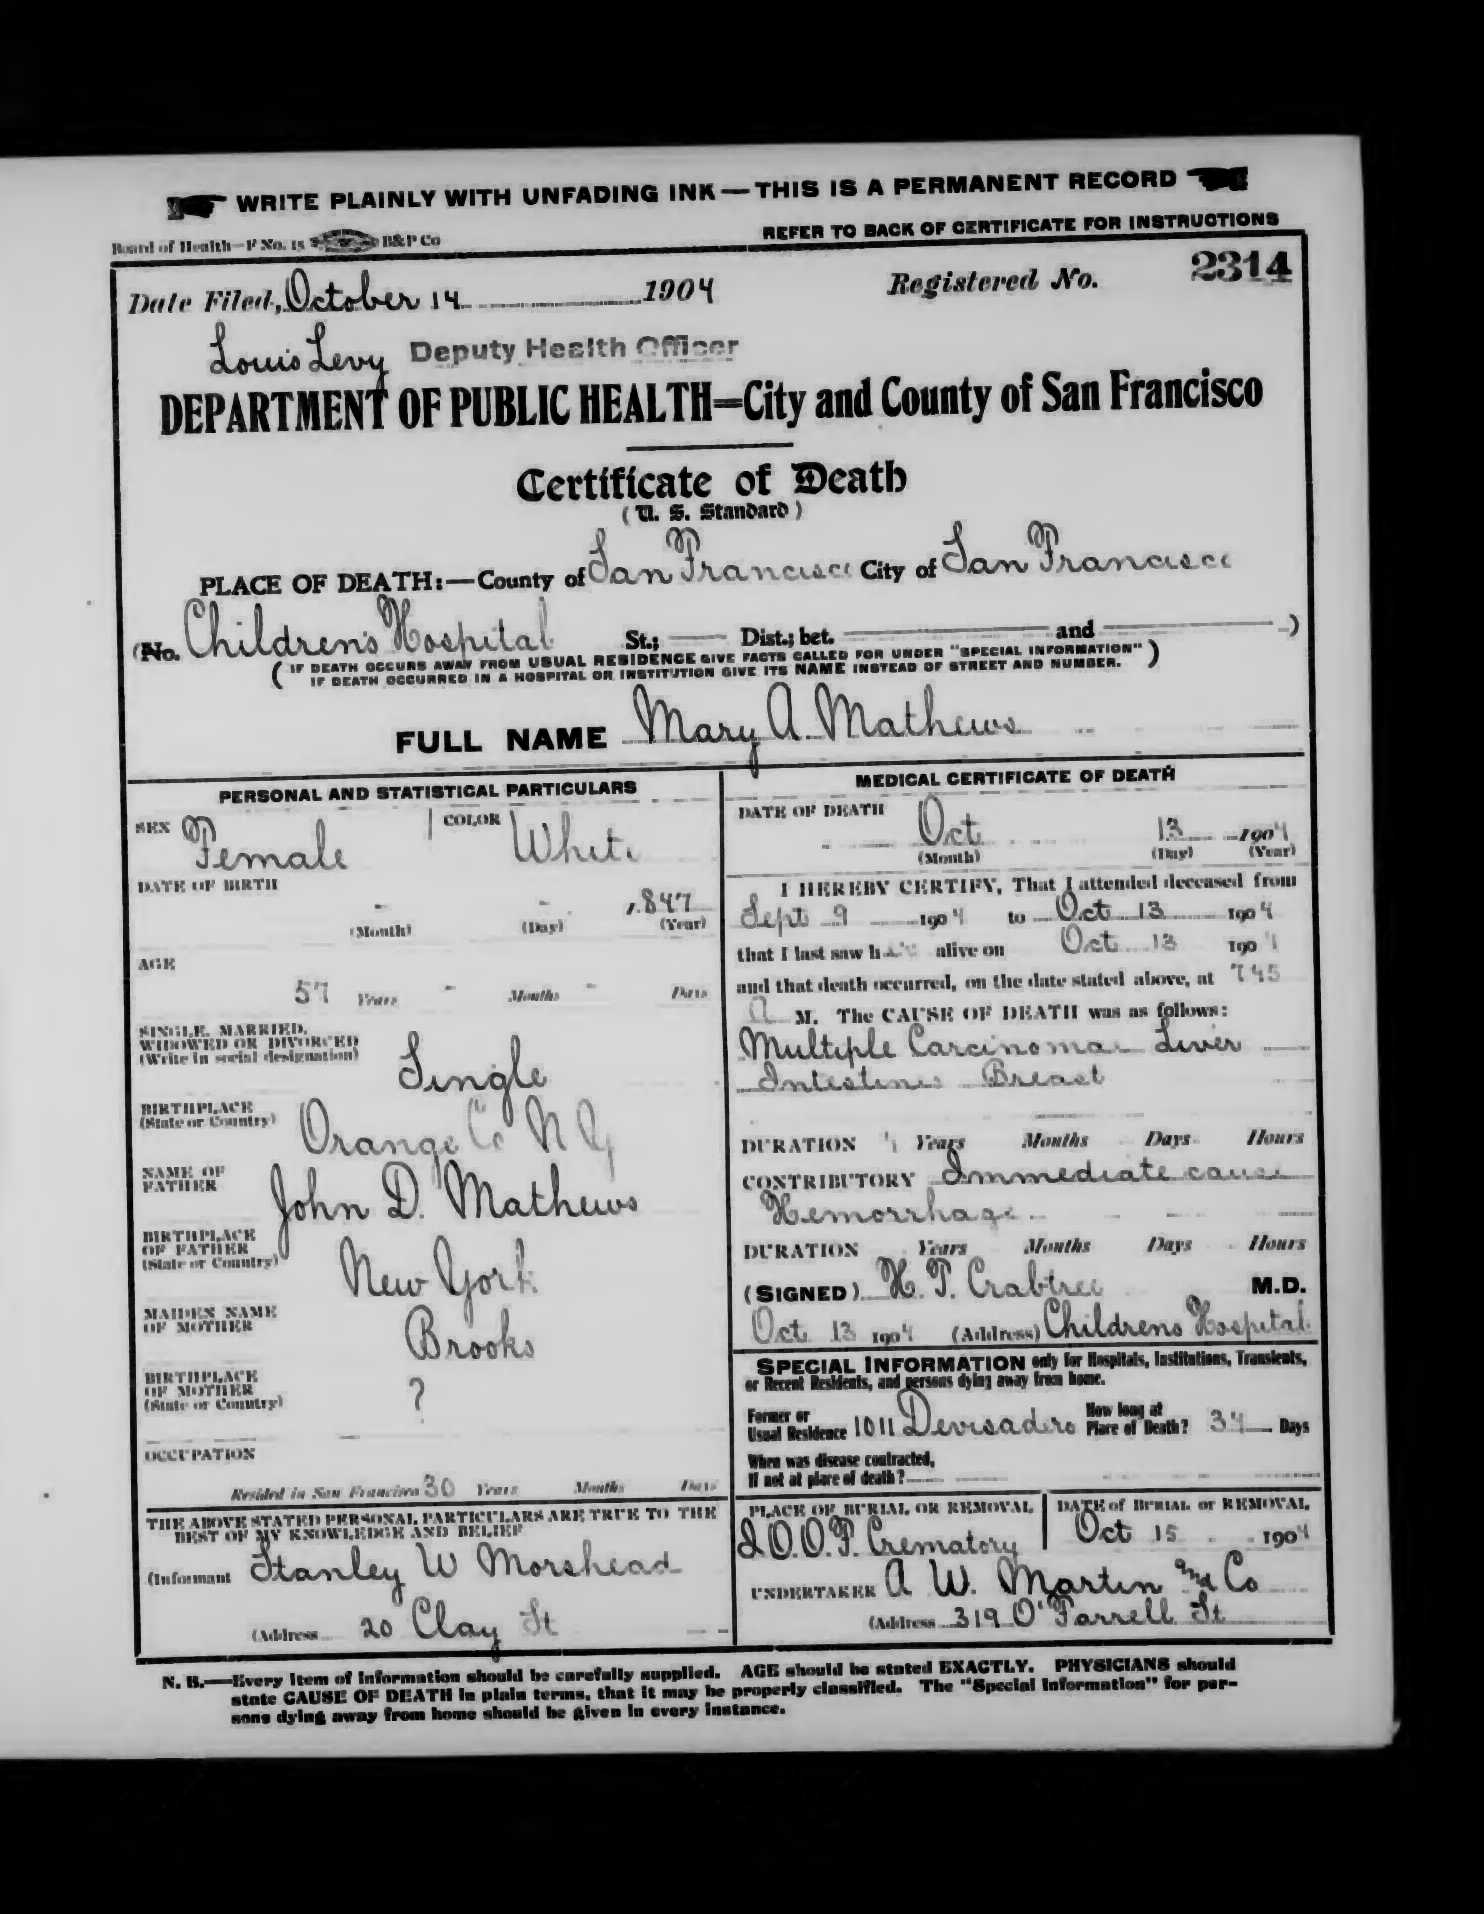 WRITE PLAINLY WITH UNFADING INK — THIS IS A PERMANENT RECORD
Board of Health—F No. 15 B&P Co
REFER TO BACK OF CERTIFICATE FOR INSTRUCTIONS
Date Filed, October 14 1904 Registered No. 2314
Louis Levy Deputy Health Officer
DEPARTMENT OF PUBLIC HEALTH=City and County of San Francisco
Certificate of Death
(U. S. Standard)
PLACE OF DEATH:—County of San Francisco City of San Francisco
(No. Children's Hospital St.; Dist.; bet. and )
( IF DEATH OCCURS AWAY FROM USUAL RESIDENCE GIVE FACTS CALLED FOR UNDER "SPECIAL INFORMATION" )
IF DEATH OCCURRED IN A HOSPITAL OR INSTITUTION GIVE ITS NAME INSTEAD OF STREET AND NUMBER.
FULL NAME Mary A. Mathews
PERSONAL AND STATISTICAL PARTICULARS
SEX Female COLOR White
DATE OF BIRTH
- - 1847
(Month) (Day) (Year)
AGE
57 Years - Months - Days
SINGLE, MARRIED,
WIDOWED OR DIVORCED
(Write in social designation) Single
BIRTHPLACE
(State or Country) Orange Co N Y
NAME OF
FATHER John D. Mathews
BIRTHPLACE
OF FATHER
(State or Country) New York
MAIDEN NAME
OF MOTHER Brooks
BIRTHPLACE
OF MOTHER
(State or Country) ?
OCCUPATION
Resided in San Francisco 30 Years Months Days
THE ABOVE STATED PERSONAL PARTICULARS ARE TRUE TO THE
BEST OF MY KNOWLEDGE AND BELIEF
(Informant Stanley W Morshead
(Address 20 Clay St
MEDICAL CERTIFICATE OF DEATH
DATE OF DEATH
Oct 13 1904
(Month) (Day) (Year)
I HEREBY CERTIFY, That I attended deceased from
Sept 9 1904 to Oct 13 1904
that I last saw her alive on Oct 13 1904
and that death occurred, on the date stated above, at 7 45
A M. The CAUSE OF DEATH was as follows:
Multiple Carcinoma Liver
Intestines Breast
DURATION Years Months Days Hours
CONTRIBUTORY Immediate cause
Hemorrhage
DURATION Years Months Days Hours
(SIGNED) H. T. Crabtree M.D.
Oct 13 1904 (Address) Childrens Hospital
SPECIAL INFORMATION only for Hospitals, Institutions, Transients,
or Recent Residents, and persons dying away from home.
Former or
Usual Residence 1011 Devisadero How long at
Place of Death? 34 Days
When was disease contracted,
If not at place of death?
PLACE OF BURIAL OR REMOVAL DATE of BURIAL or REMOVAL
I.O.O.F. Crematory Oct 15 1904
UNDERTAKER A W. Martin and Co
(Address 319 O'Farrell St
N. B.—Every item of information should be carefully supplied. AGE should be stated EXACTLY. PHYSICIANS should
state CAUSE OF DEATH in plain terms, that it may be properly classified. The "Special Information" for per-
sons dying away from home should be given in every instance.